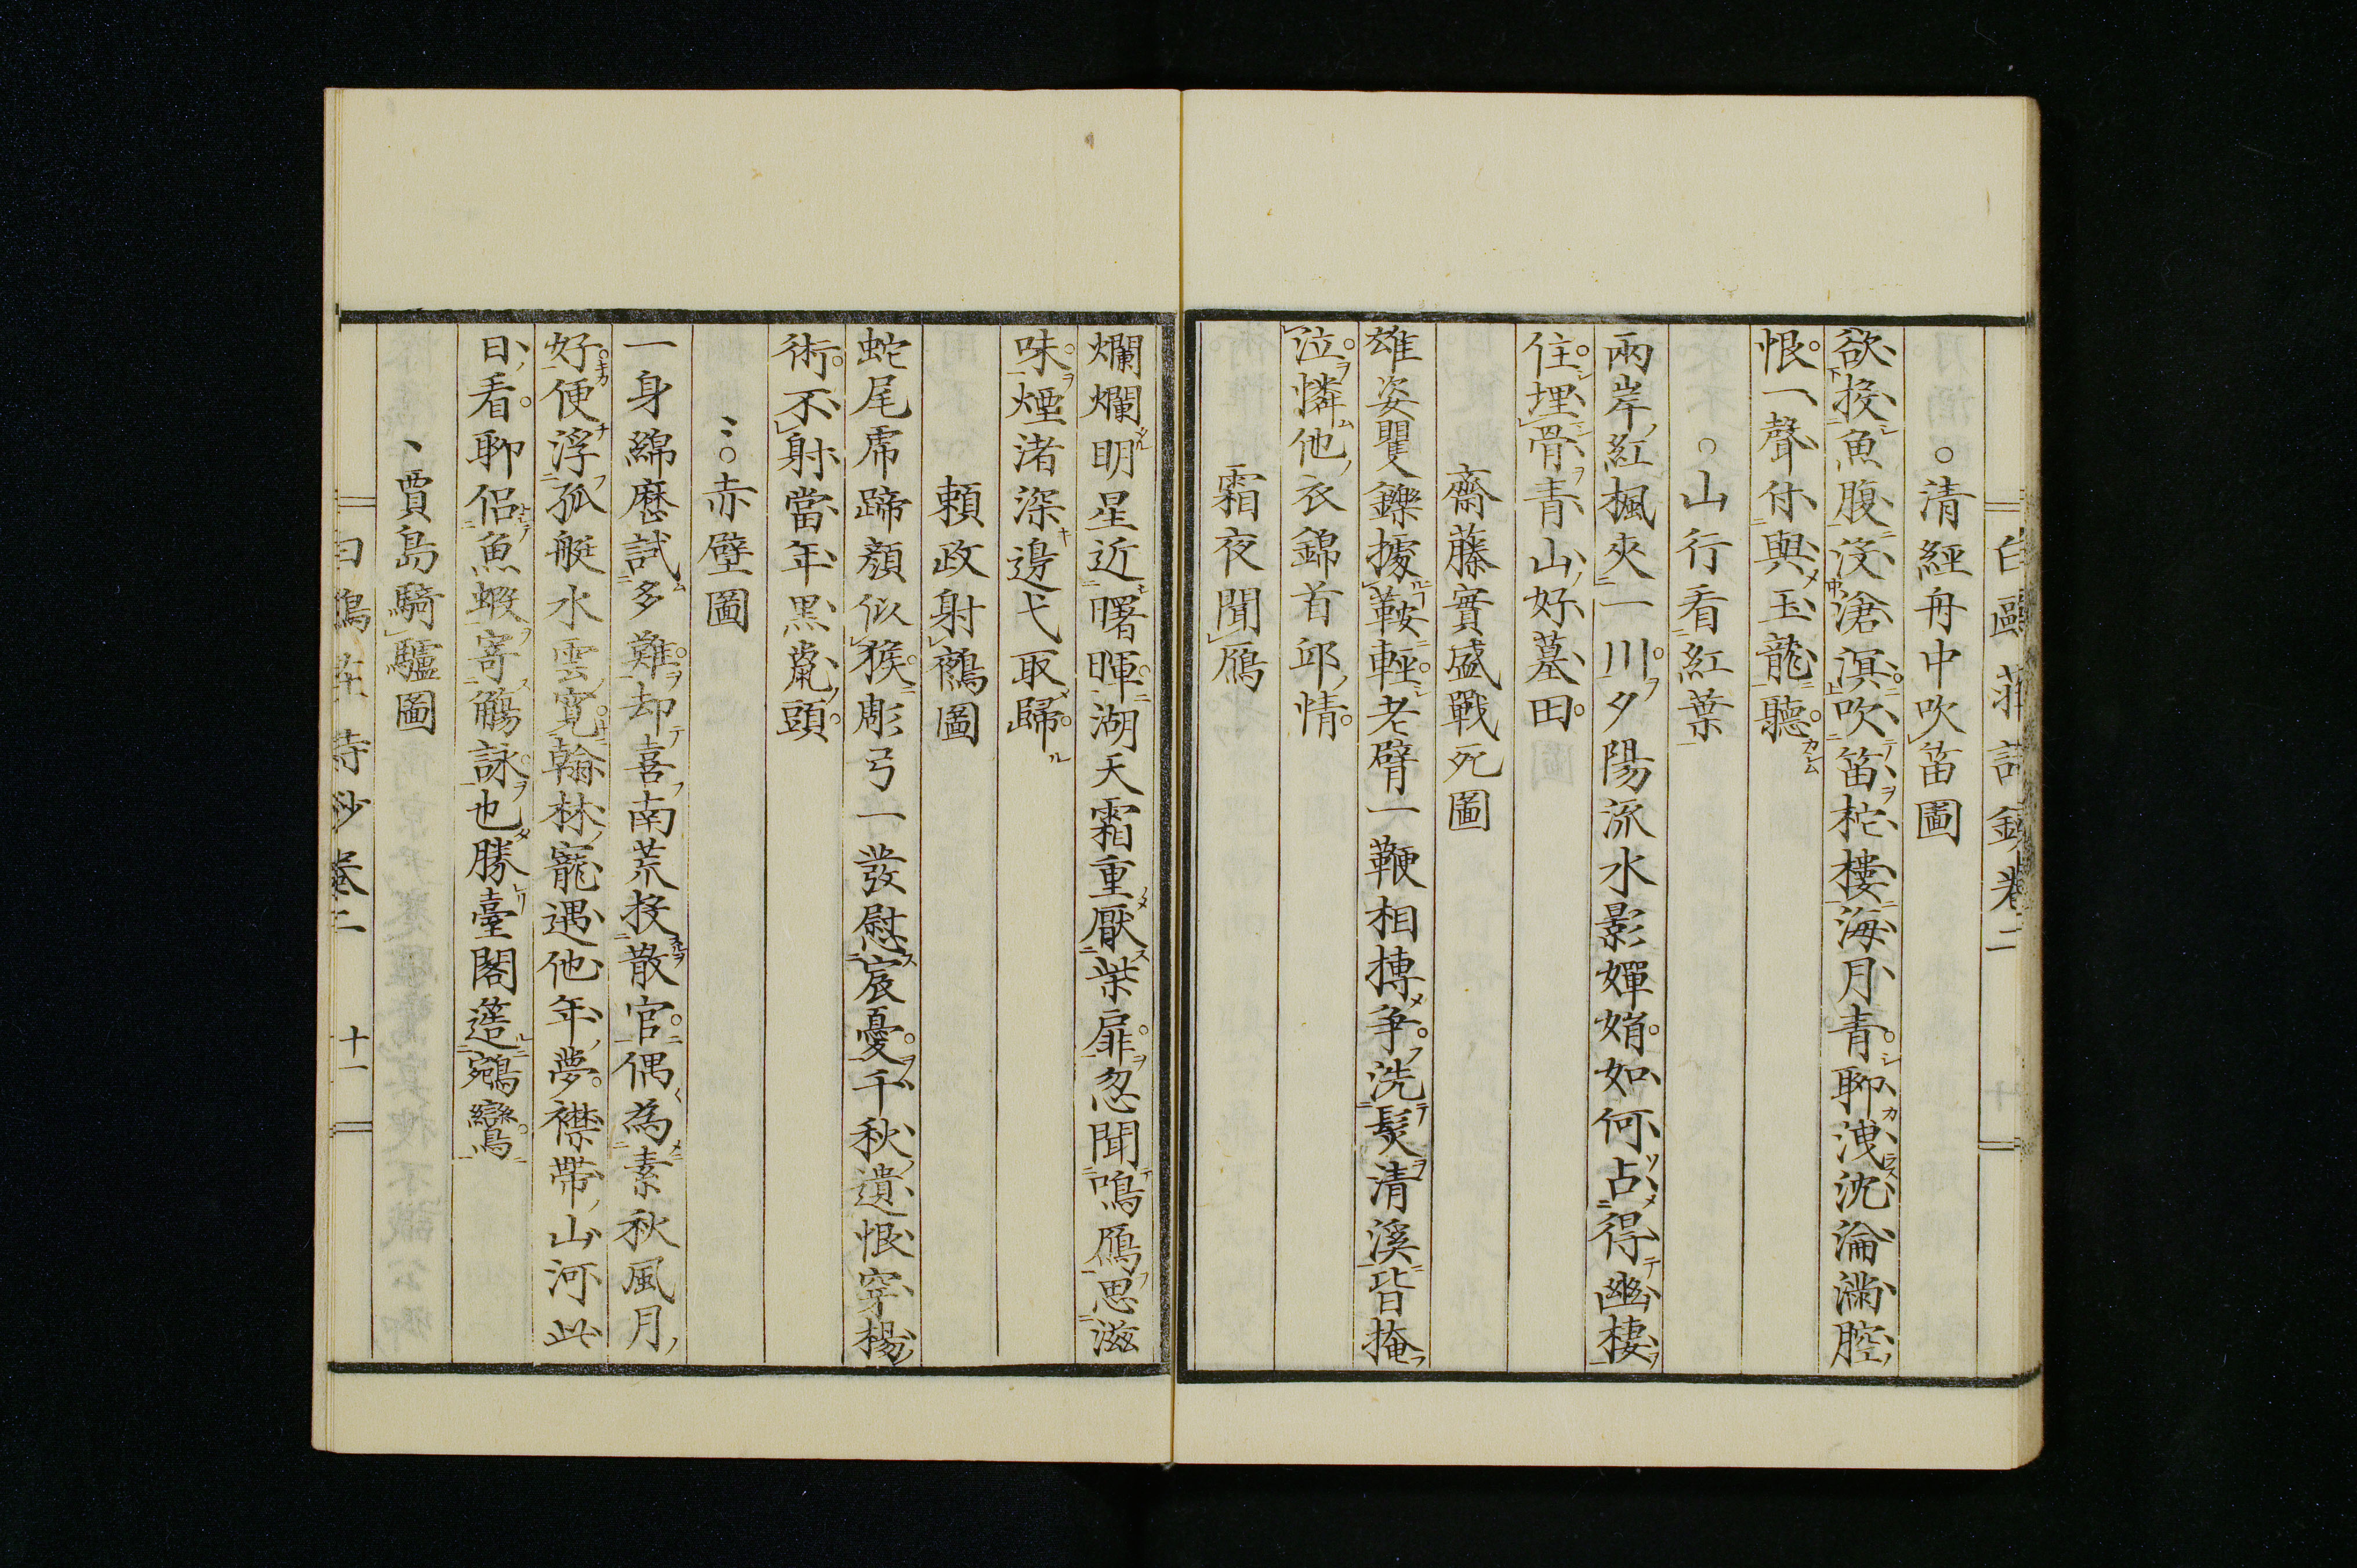 白鷗莊詩鈔卷二
○清經舟中吹笛圖
欲投魚腹沒滄溟吹笛柁樓海月青聊洩沈淪滿腔
恨一聲付與玉龍聽
○山行看紅葉
兩岸紅楓夾一川夕陽流水影嬋娟如何占得幽棲
住埋骨青山好墓田
齋藤實盛戰死圖
雄姿矍鑠據鞍輕老臂一鞭相摶爭洗髮清溪皆掩
泣憐他衣錦首邱情
霜夜聞鴈
爛爛明星近曙暉湖天霜重壓柴扉忽聞鳴鴈思滋
味煙渚深邊弋取歸
賴政射鵺圖
蛇尾虎蹄顏似猴彫弓一發慰宸憂千秋遺恨穿楊
術不射當年黑鼠頭
ミ○赤壁圖
一身綿歷試多難却喜南荒投散官偶為素秋風月
好便浮孤艇水雲寬翰林寵遇他年夢襟帶山河此
日看聊侶魚蝦寄觴詠也勝臺閣簉鵷鸞
、賈島騎驢圖
白鷗莊詩鈔卷二 十一